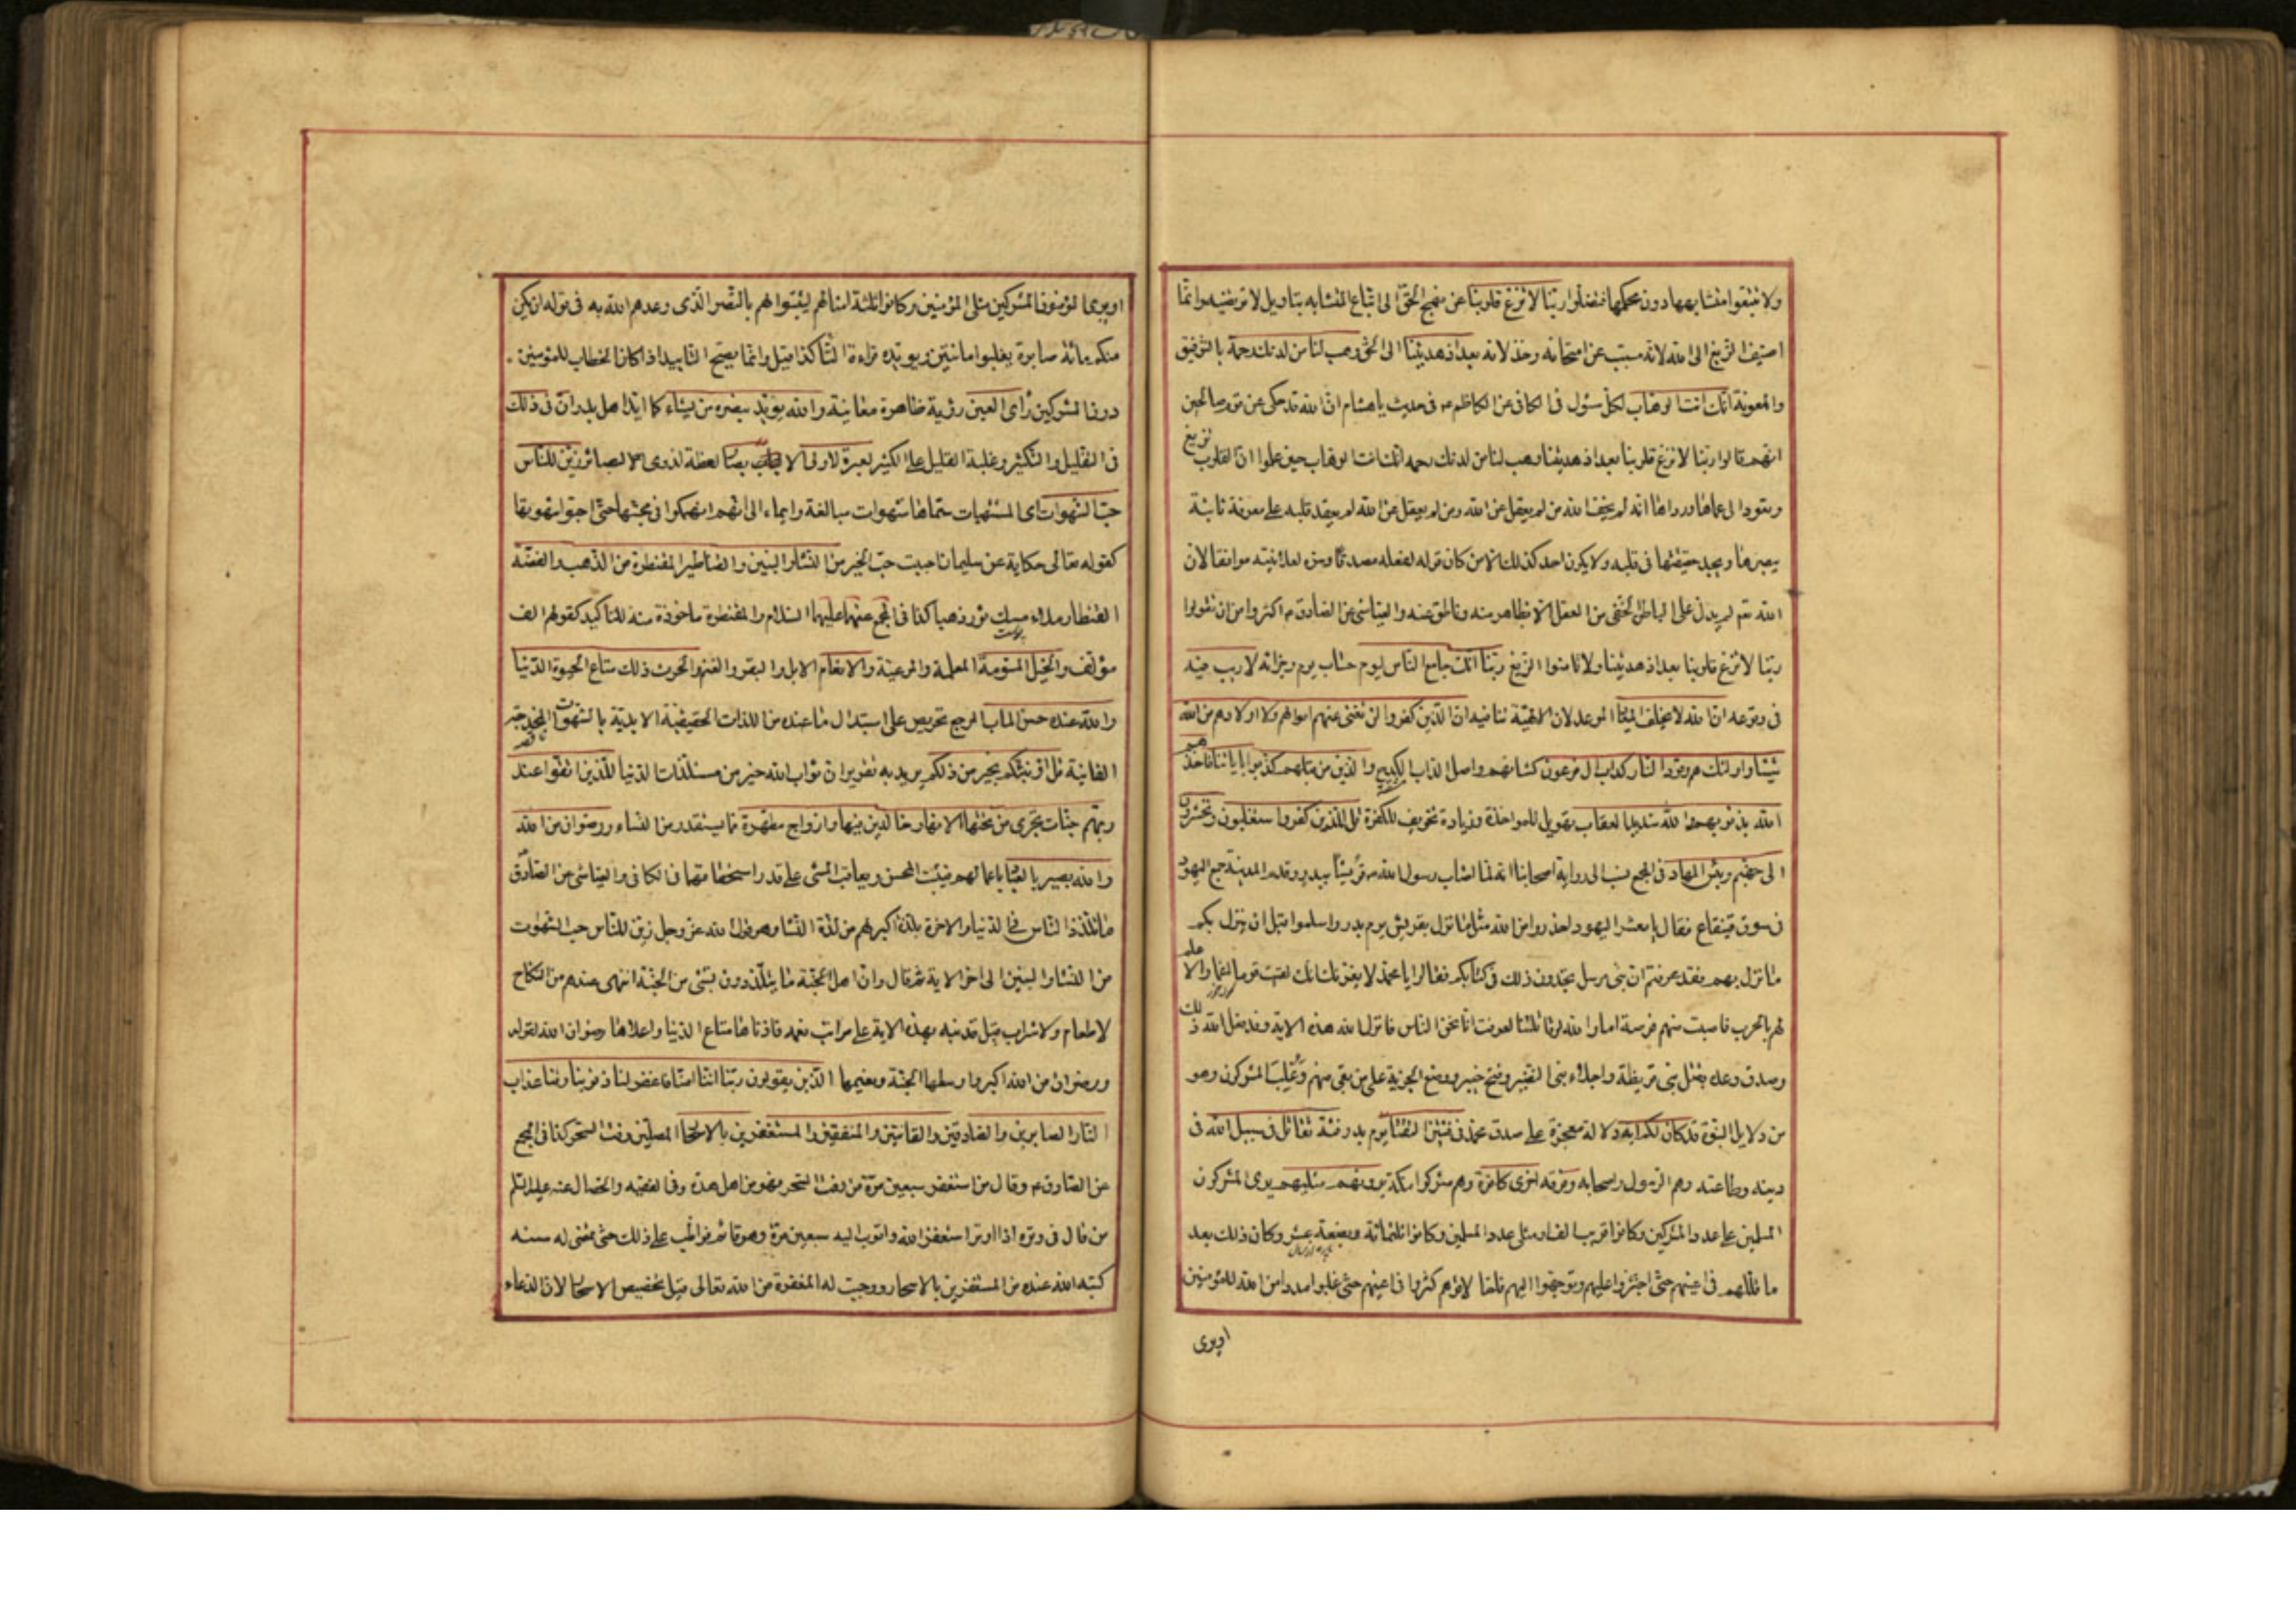 ولا تتبعوا متشابهها دون محكمها فتضلوا ربنا لا تزغ قلوبنا عن نهج الحق الى اتباع المتشابه بتاويل لا ترتضيه وانما
اضيف الزيغ الى الله لانه مسبب عن امتحانه وخذلانه بعد اذ هديتنا الى الحق وهب لنا من لدنك رحمة بالتوفيق
والمعونة انك انت الوهاب لكل سئول فى الكافى عن الكاظم ع فى حديث يا هشام ان الله قد حكى عن قوم صالحين
انهم قالوا ربنا لا تزغ قلوبنا بعد اذ هديتنا وهب لنا من لدنك رحمه انك انت الوهاب حين علموا ان القلوب تزيغ
وتعود الى عماها ورداها انه لم يخف الله من لم يعقل عن الله ومن لم يعقل عن الله لم يعقد قلبه على معرفة ثابتة
يبصرها ويجد حقيقتها فى قلبه ولا يكون احد كذلك الا من كان قوله لفعله مصدقا وسره لعلانيته موافقا لان
الله تعـ لم يدل على الباطن الخفى من العقل الا بظاهر منه وناطق عنه والعياشى عن الصادق ع اكثروا من ان تقولوا
ربنا لا تزغ قلوبنا بعد اذ هديتنا ولا تامنوا الزيغ ربنا انك جامع الناس ليوم حساب يوم وجزائه لا ريب فيه
فى وقوعه ان الله لا يخلف الميعاد الموعد لان الالهية تنافيه ان الذين كفروا لن تغنى عنهم اموالهم ولا اولادهم من الله
شيئا واولئك هم وقود النار كداب ال فرعون كشانهم واصل الداب الكدح والذين من قبلهم كذبوا باياتنا فاخذهم
الله بذنوبهم والله شديد العقاب تهويل للمواخذة وزيادة تخويف للكفرة قل للذين كفروا ستغلبون وتحشرون
الى جهنم وبئس المهاد فى المجمع نسب الى رواية اصحابنا انه لما اصاب رسول الله ص قريشا ببدر وقدم المدينة جمع اليهود
فى سوق قينقاع فقال يا معشر اليهود احذروا من الله مثل ما نزل بقريش يوم بدر واسلموا قبل ان ينزل بكم
ما نزل بهم فقد عرفتم ان نبى مرسل تجدون ذلك فى كتابكم فقالوا يا محمد لا يغرنك انك لقيت قوما اغمارا لا علم
لهم بالحرب فاصبت منهم فرصة اما والله لو قاتلتنا لعرفت انا نحن الناس فانزل الله هذه الاية وقد فعل الله ذلك
وصدق وعده بقتل بنى قريظة واجلاء بنى النضير وفتح خيبر ووضع الجزية على من بقى منهم وغلب المشركون وهو
من دلايل النبوة قد كان لكم اية دلالة معجزة على صدق محمد فى فئتين التقتا يوم بدر فئة تقاتل فى سبيل الله فى
دينه وطاعته وهم الرسول واصحابه وفرقه اخرى كافرة وهم مشركوا مكة يرونهم مثليهم يرى المشركون
المسلمين على عدد المشركين وكانوا قريب الف او مثلى عدد المسلمين وكانوا ثلثمائة وبضعة عشر وكان ذلك بعد
ما قللهم فى اعينهم حتى اجترؤا عليهم وتوجهوا اليهم فلما لاقوهم كثروا فى اعينهم حتى غلبوا مددا من الله للمؤمنين
او يرى
او يرى المؤمنون المشركين مثلى المؤمنين وكانوا ثلثة امثالهم ليثبتوا لهم بالنصر الذى وعدهم الله به فى قوله ان يكن
منكم مائة صابرة يغلبوا مائتين ويويده قراءة التاء كذا قيل وانما يصح التاييد اذا كان الخطاب للمؤمنين
دون المشركين راى العين رؤية ظاهرة معاينة والله يؤيد بنصره من يشاء كما ايد اهل بدر ان فى ذلك
فى التقليل والتكثير وغلبة القليل على الكثير لعبرة لاولى الابصار لعظة لذوى البصائر زين للناس
حب الشهوات اى المشتهيات سماها شهوات مبالغة وايماء الى انهم انهمكوا فى محبتها حتى احبوا شهوتها
كقوله تعالى حكاية عن سليمان احببت حب الخير من النساء والبنين والقناطير المقنطرة من الذهب والفضة
القنطار ملاء مسك ثور ذهبا كذا فى المجمع عنهما عليهما السلام والمقنطرة ماخوذة منه للتاكيد كقولهم الف
مؤلف والخيل المسومة المعلمة والمرعية والانعام الابل والبقر والغنم والحرث ذلك متاع الحيوة الدنيا
والله عنده حسن الماب المرجع تحريص على استبدال ما عنده من اللذات الحقيقية الابدية بالشهوات المخدجة
الفانية قل اؤنبئكم بخير من ذلكم يريد به تقرير ان ثواب الله خير من مستلذات الدنيا للذين اتقوا عند
ربهم جنات تجرى من تحتها الانهار خالدين فيها وازواج مطهرة مما يستقذر من النساء ورضوان من الله
والله بصير بالعباد باعمالهم فيثيب المحسن ويعاقب المسى على قدر استحقاقهما فى الكافى والعياشى عن الصادق
ما تلذذ الناس فى الدنيا والاخرة بلذة اكبر لهم من لذة النساء وهو قول الله عز وجل زين للناس حب الشهوات
من النساء والبنين الى اخر الاية ثم قال وان اهل الجنة ما يتلذذون بشئ من الجنة اشهى عندهم من النكاح
لا طعام ولا شراب قيل قد نبه بهذه الاية على مراتب نعمه فادناها متاع الدنيا واعلاها رضوان الله لقوله
ورضوان من الله اكبر واوسطها الجنة ونعيمها الذين يقولون ربنا اننا امنا فاغفر لنا ذنوبنا وقنا عذاب
النار الصابرين والصادقين والقانتين والمنفقين والمستغفرين بالاسحار المصلين وقت السحر كذا فى المجمع
عن الصادق ع وقال من استغفر سبعين مرة من وقت السحر فهو من اهل هذه وفى الفقيه والخصال عنه عليه السلم
من قال فى وتره اذا اوتر استغفر الله واتوب اليه سبعين مرة وهو قائم فواظب على ذلك حتى تمضى له سنه
كتبه الله عنده من المستغفرين بالاسحار ووجبت له المغفرة من الله تعالى قيل تخصيص الاسحار لان الدعاء